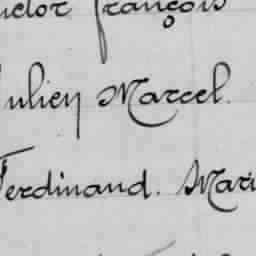 ictor françois
Julien Marcel.
Ferdinand. Mari